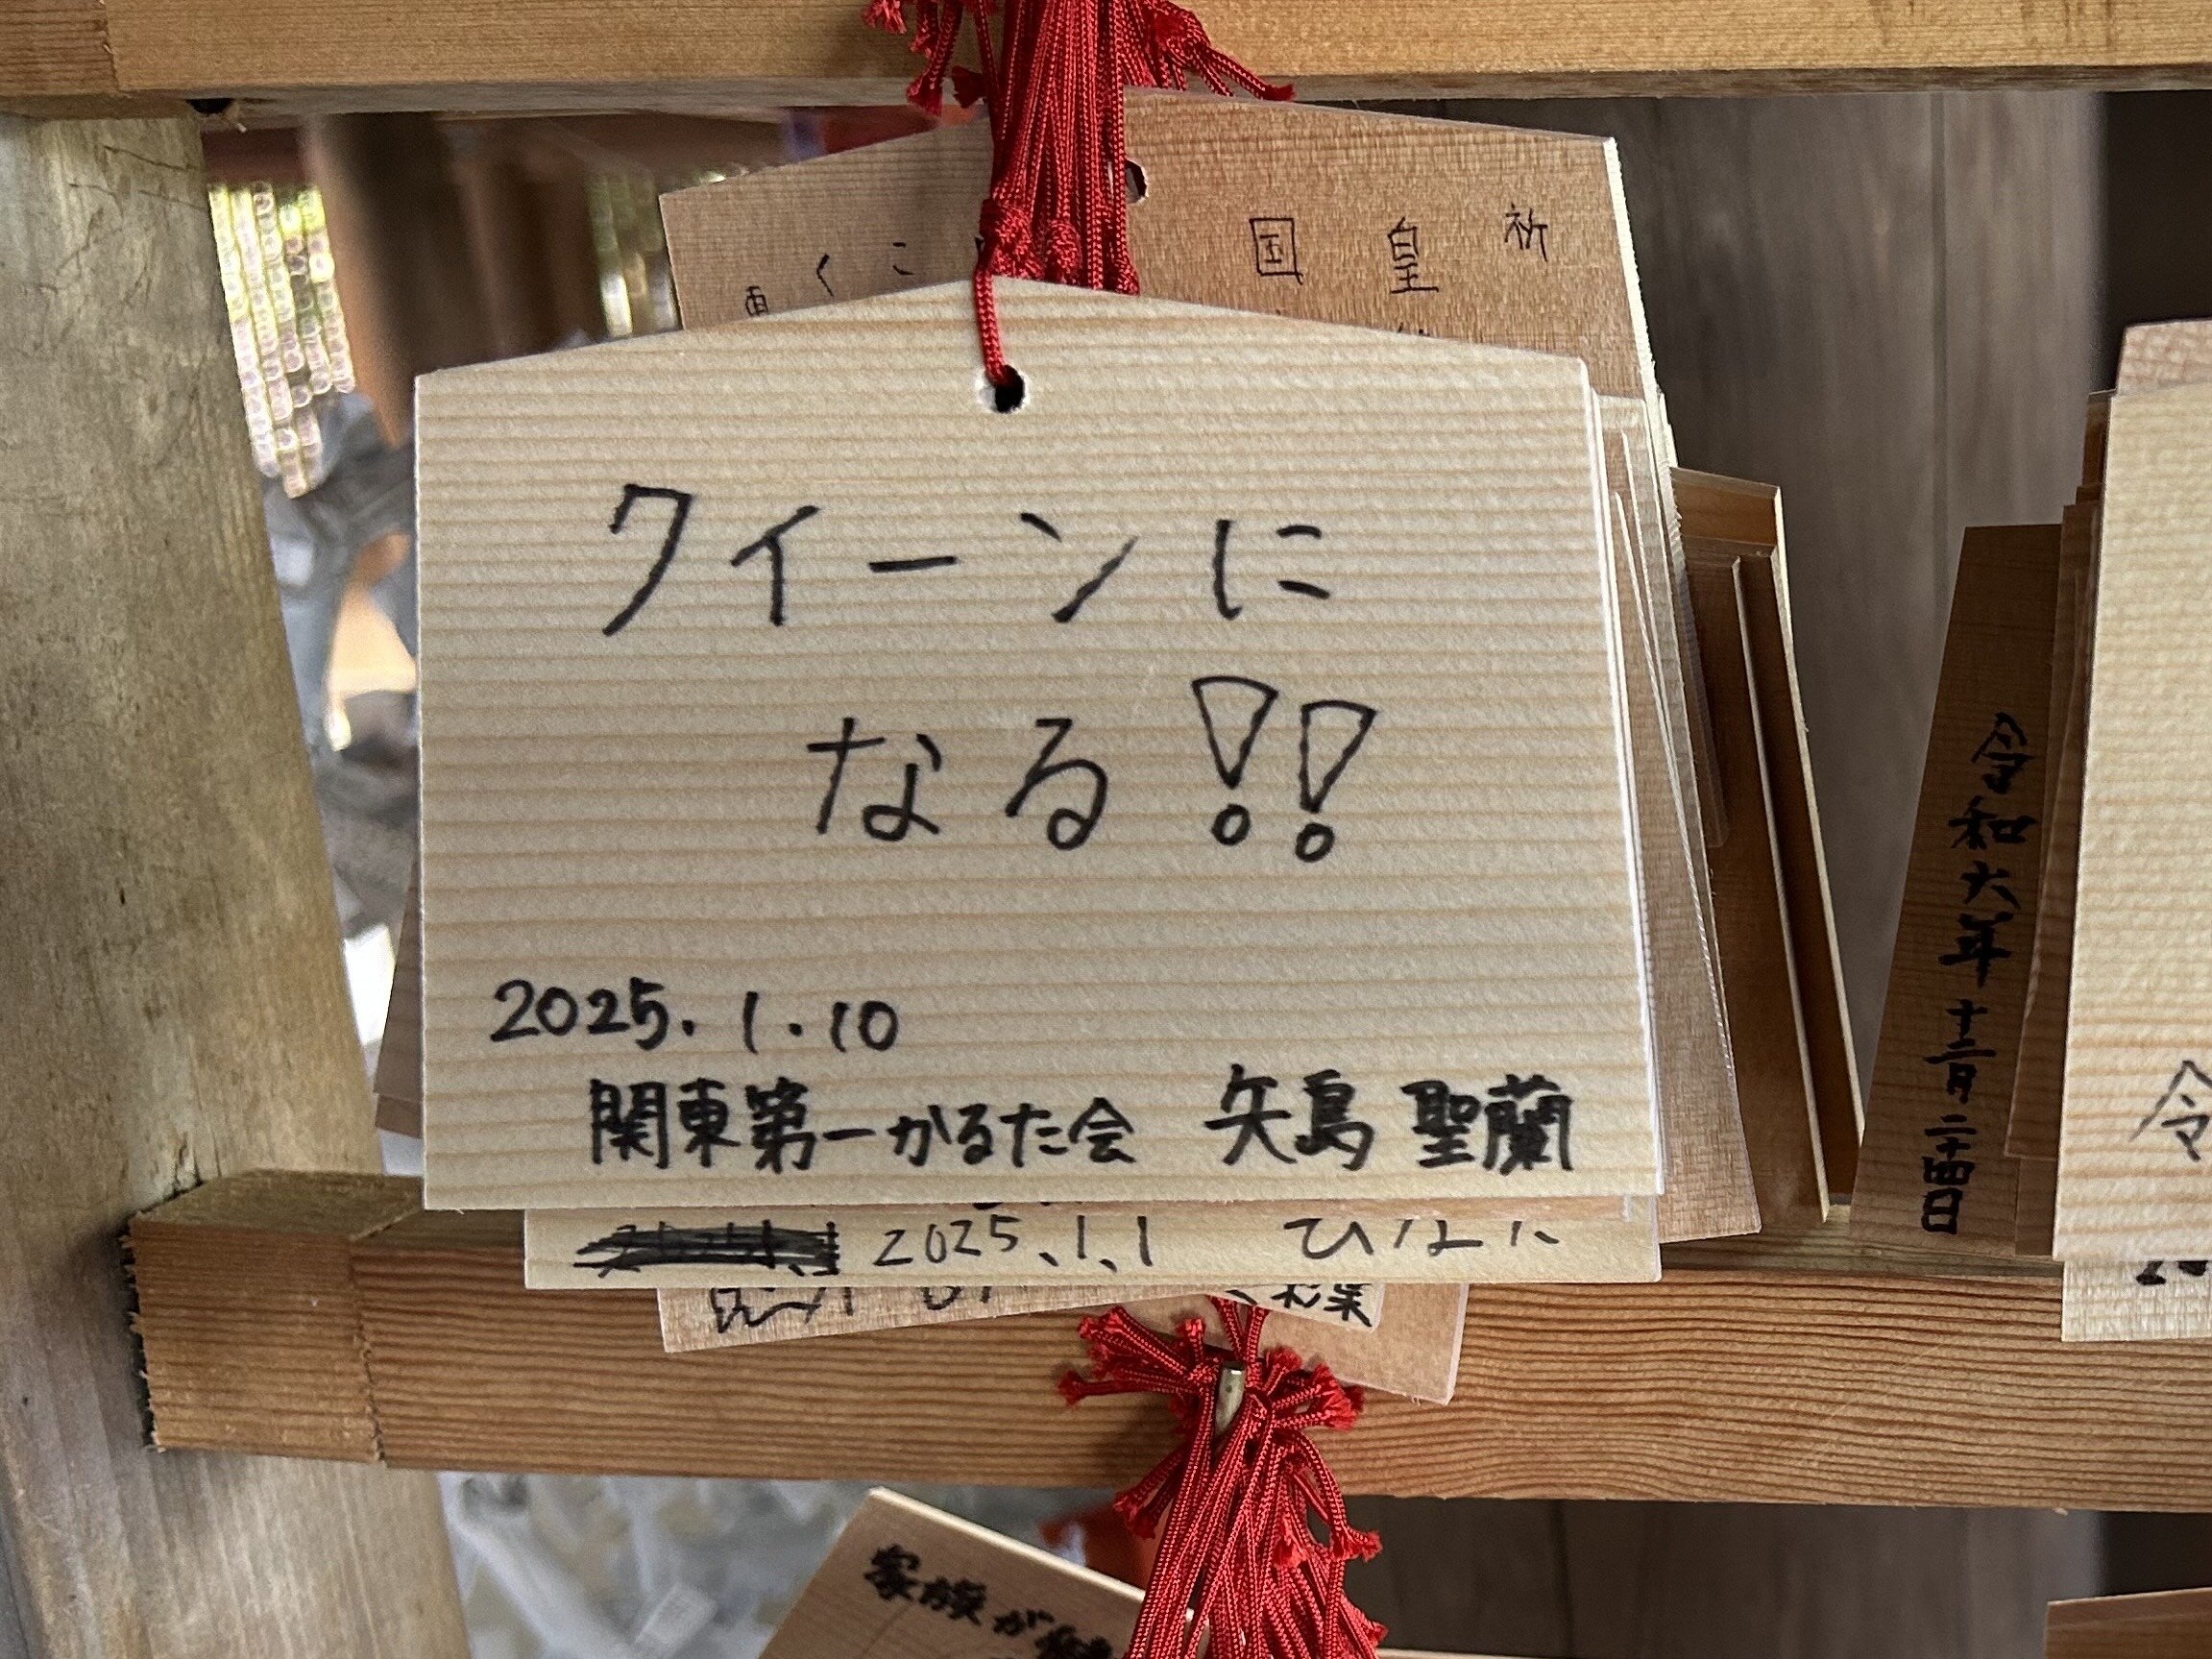 祈
皇
国
こ
く
クイーンに
なる!!
2025.1.10
関東第一かるた会 矢島 聖蘭
2025.1.1
令和六年十二月二十四日
令
家族が